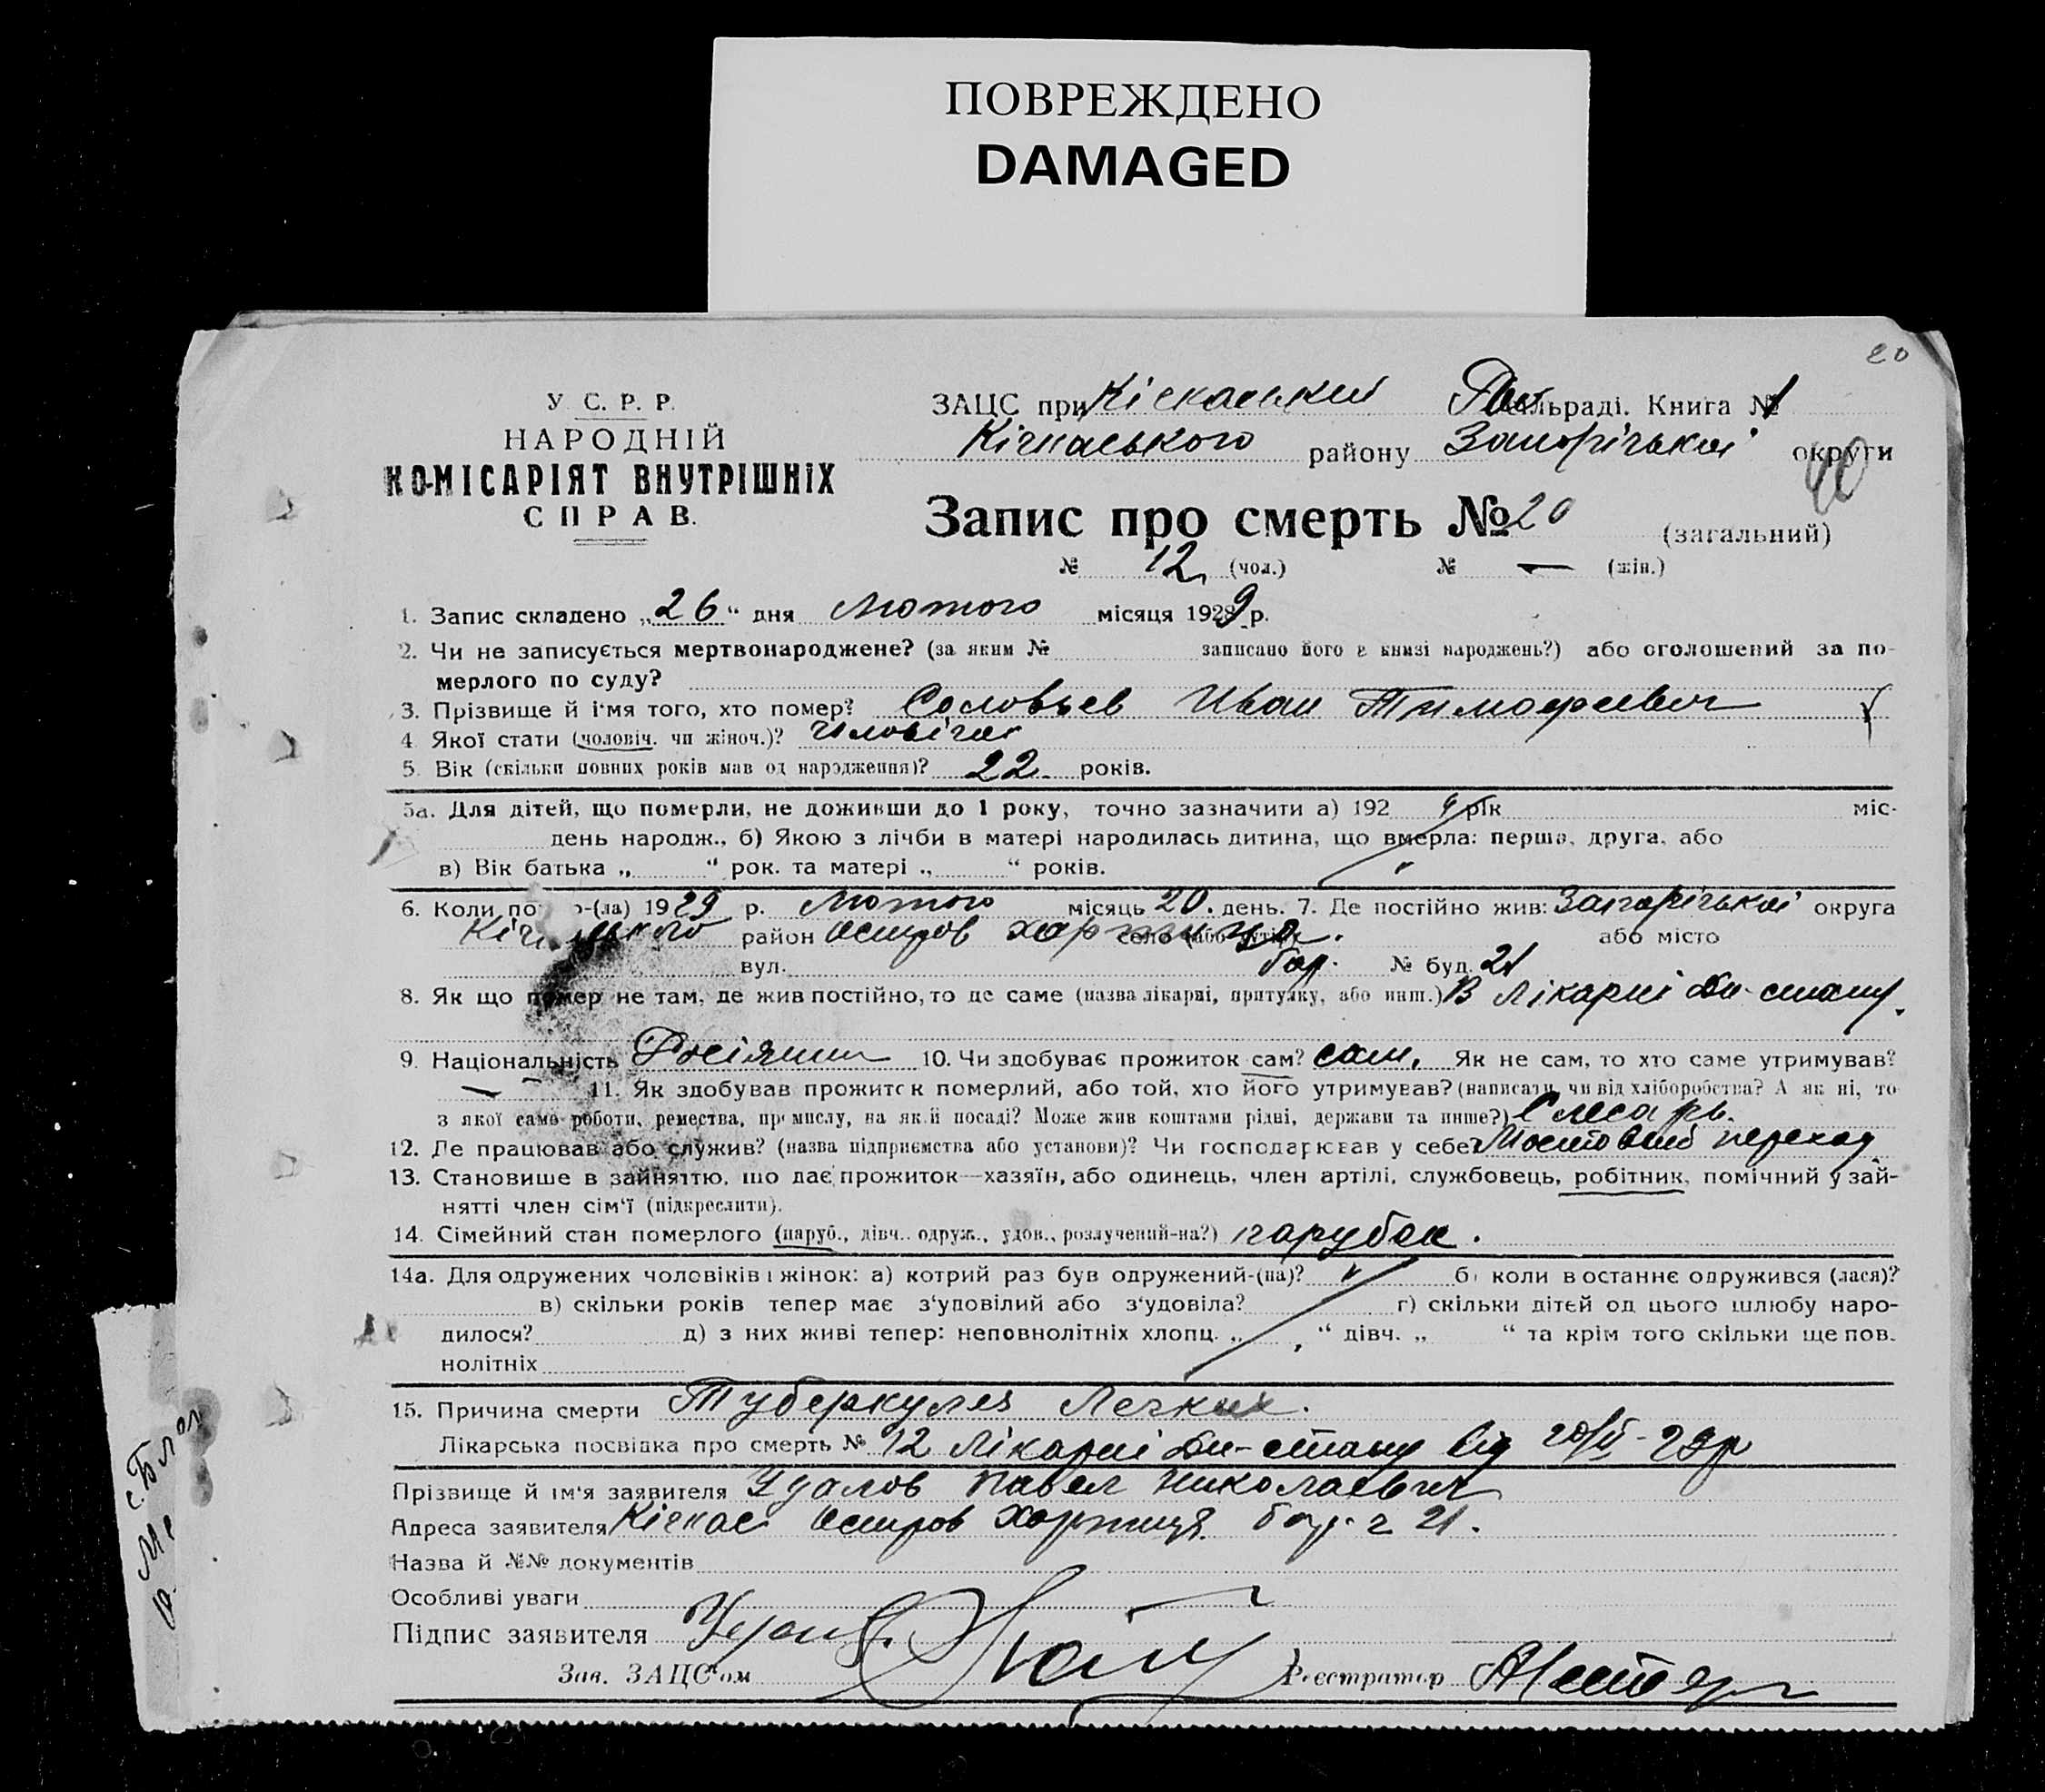 ПОВРЕЖДЕНО
DAMAGED
20
У. С. Р. Р.
НАРОДНІЙ
КОМІСАРІЯТ ВНУТРІШНІХ
СПРАВ.
ЗАЦС при Кічкаський Рай сільраді. Книга № 1
Кічкаського району Запорізької округи
40
Запис про смерть № 20 (загальний)
№ 12 (чол.) № — (жін.)
1. Запис складено „26“ дня Лютого місяця 1929 р.
2. Чи не записується мертвонароджене? (за яким № записано його в книзі народжень?) або оголошений за по-
мерлого по суду?
3. Прізвище й ім'я того, хто помер? Соловьев Иван Тимофеевич
4. Якої стати (чоловіч. чи жіноч.)? Чоловіча
5. Вік (скільки повних років мав од народження)? 22 років.
5а. Для дітей, що померли, не доживши до 1 року, точно зазначити а) 192 рік міс-
день народж., б) Якою з лічби в матері народилась дитина, що вмерла: перша, друга, або
в) Вік батька „ “ рок. та матері „ “ років.
6. Коли по о-(ла) 1929 р. Лютого місяць 20. день. 7. Де постійно жив: Запорізької округа
Кічкаського район Остров Хортица. село (або хутір) або місто
вул. бар. № буд. 21
8. Як що помер не там, де жив постійно, то де саме (назва лікарні, притулку, або инш.) В Лікарні Дн-стану.
9. Національність Росіянин 10. Чи здобуває прожиток сам? сам. Як не сам, то хто саме утримував?
— 11. Як здобував прожиток померлий, або той, хто його утримував? (написати, чи від хліборобства? А як ні, то
з якої само роботи, ремества, промислу, на якій посаді? Може жив коштами рідні, держави та инше?) Слесарь.
12. Де працював або служив? (назва підприємства або установи)? Чи господарював у себе? Мостовий переход
13. Становише в зайняттю, що дає прожиток—хазяїн, або одинець, член артілі, службовець, робітник, помічний у зай-
нятті член сім'ї (підкреслити).
14. Сімейний стан померлого (паруб., дівч. одруж., удов., розлучений-на?) парубок.
14а. Для одружених чоловіків і жінок: а) котрий раз був одружений-(на)? б) коли в останнє одружився (лася)?
в) скільки років тепер має з'уповілий або з'удовіла? г) скільки дітей од цього шлюбу наро-
дилося? д) з них живі тепер: неповнолітніх хлопц. „ “ дівч. „ “ та крім того скільки ще пов.
нолітніх
15. Причина смерти Туберкулез Легких.
Лікарська посвідка про смерть № 12 Лікарні Дн-стану від 20/II-29р
Прізвище й ім'я заявителя Удалов Павел Николаевич
Адреса заявителя Кічкас Остров Хортиця бар. 21.
Назва й №№ документів
Особливі уваги
Підпис заявителя
Зав. ЗАЦС'ом Реєстратор
с. Бл